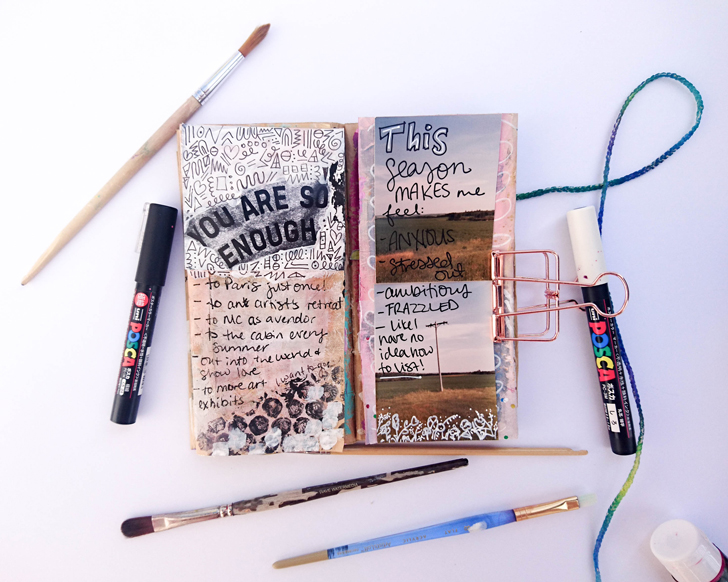 YOU ARE SO
ENOUGH
- to Paris just once!
- to artists retreat
- to MC as a vendor
- to the cabin every
summer
- out into the world &
show love
- to more art I want to go..
exhibits
This
season
MAKES me
feel:
- ANXIOUS
- stressed
Out
- ambitious
- FRAZZLED
- like I
have no
idea how
to
POSCA
POSCA